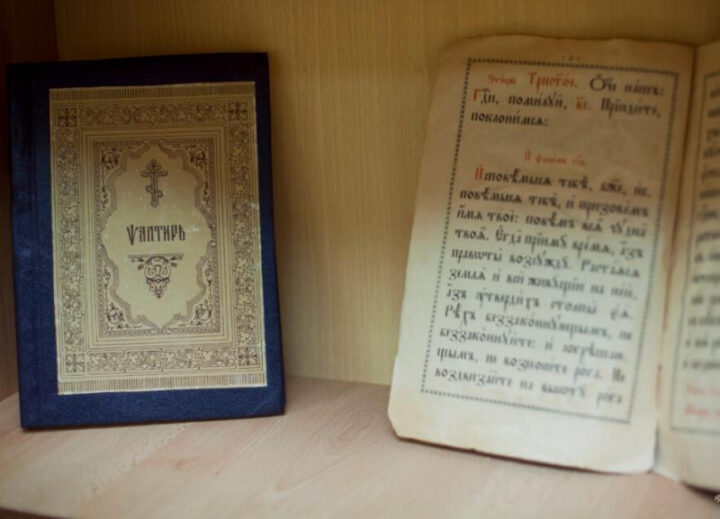 Ѱалтирь
Трист҃ое. Ѻ҃че нашъ:
Гдⷭ҇и, помилꙋй, в҃і. Прїидите,
поклонимсѧ:
Исповѣмысѧ тебѣ, бж҃е, ис-
повѣмысѧ тебѣ, и призовемъ
имѧ твое: повѣмъ всѧ чꙋдеса
твоѧ. Егда прїимꙋ времѧ, азъ
правѡты возсꙋждꙋ. Растаѧсѧ
землѧ и вси живꙋщїи на ней,
азъ ᲂутвердихъ столпы еѧ.
Рѣхъ беззаконнꙋющымъ, не
беззаконнꙋйте: и согрѣшаю-
щымъ, не возносите рога. Не
воздвизайте на высотꙋ рога